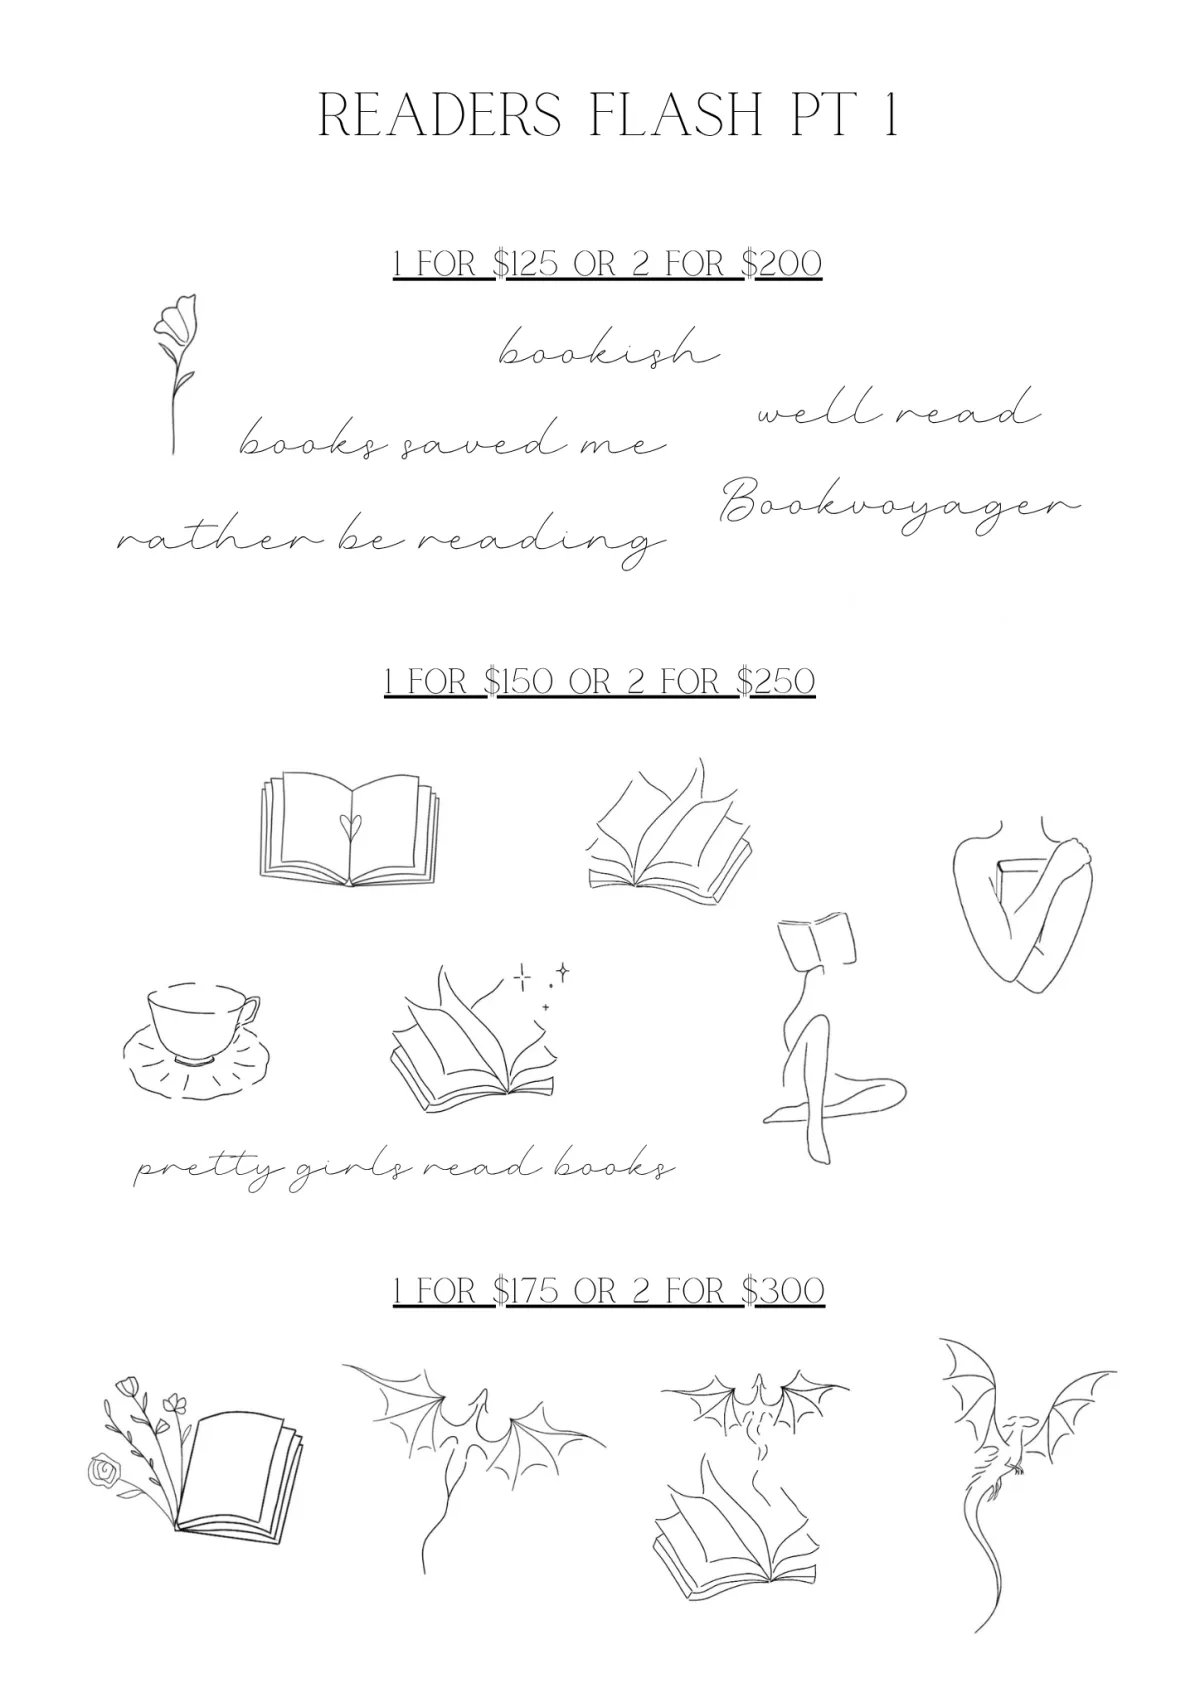 READERS FLASH PT 1
1 FOR $125 OR 2 FOR $200
bookish
well read
books saved me
Bookvoyager
rather be reading
1 FOR $150 OR 2 FOR $250
pretty girls read books
1 FOR $175 OR 2 FOR $300